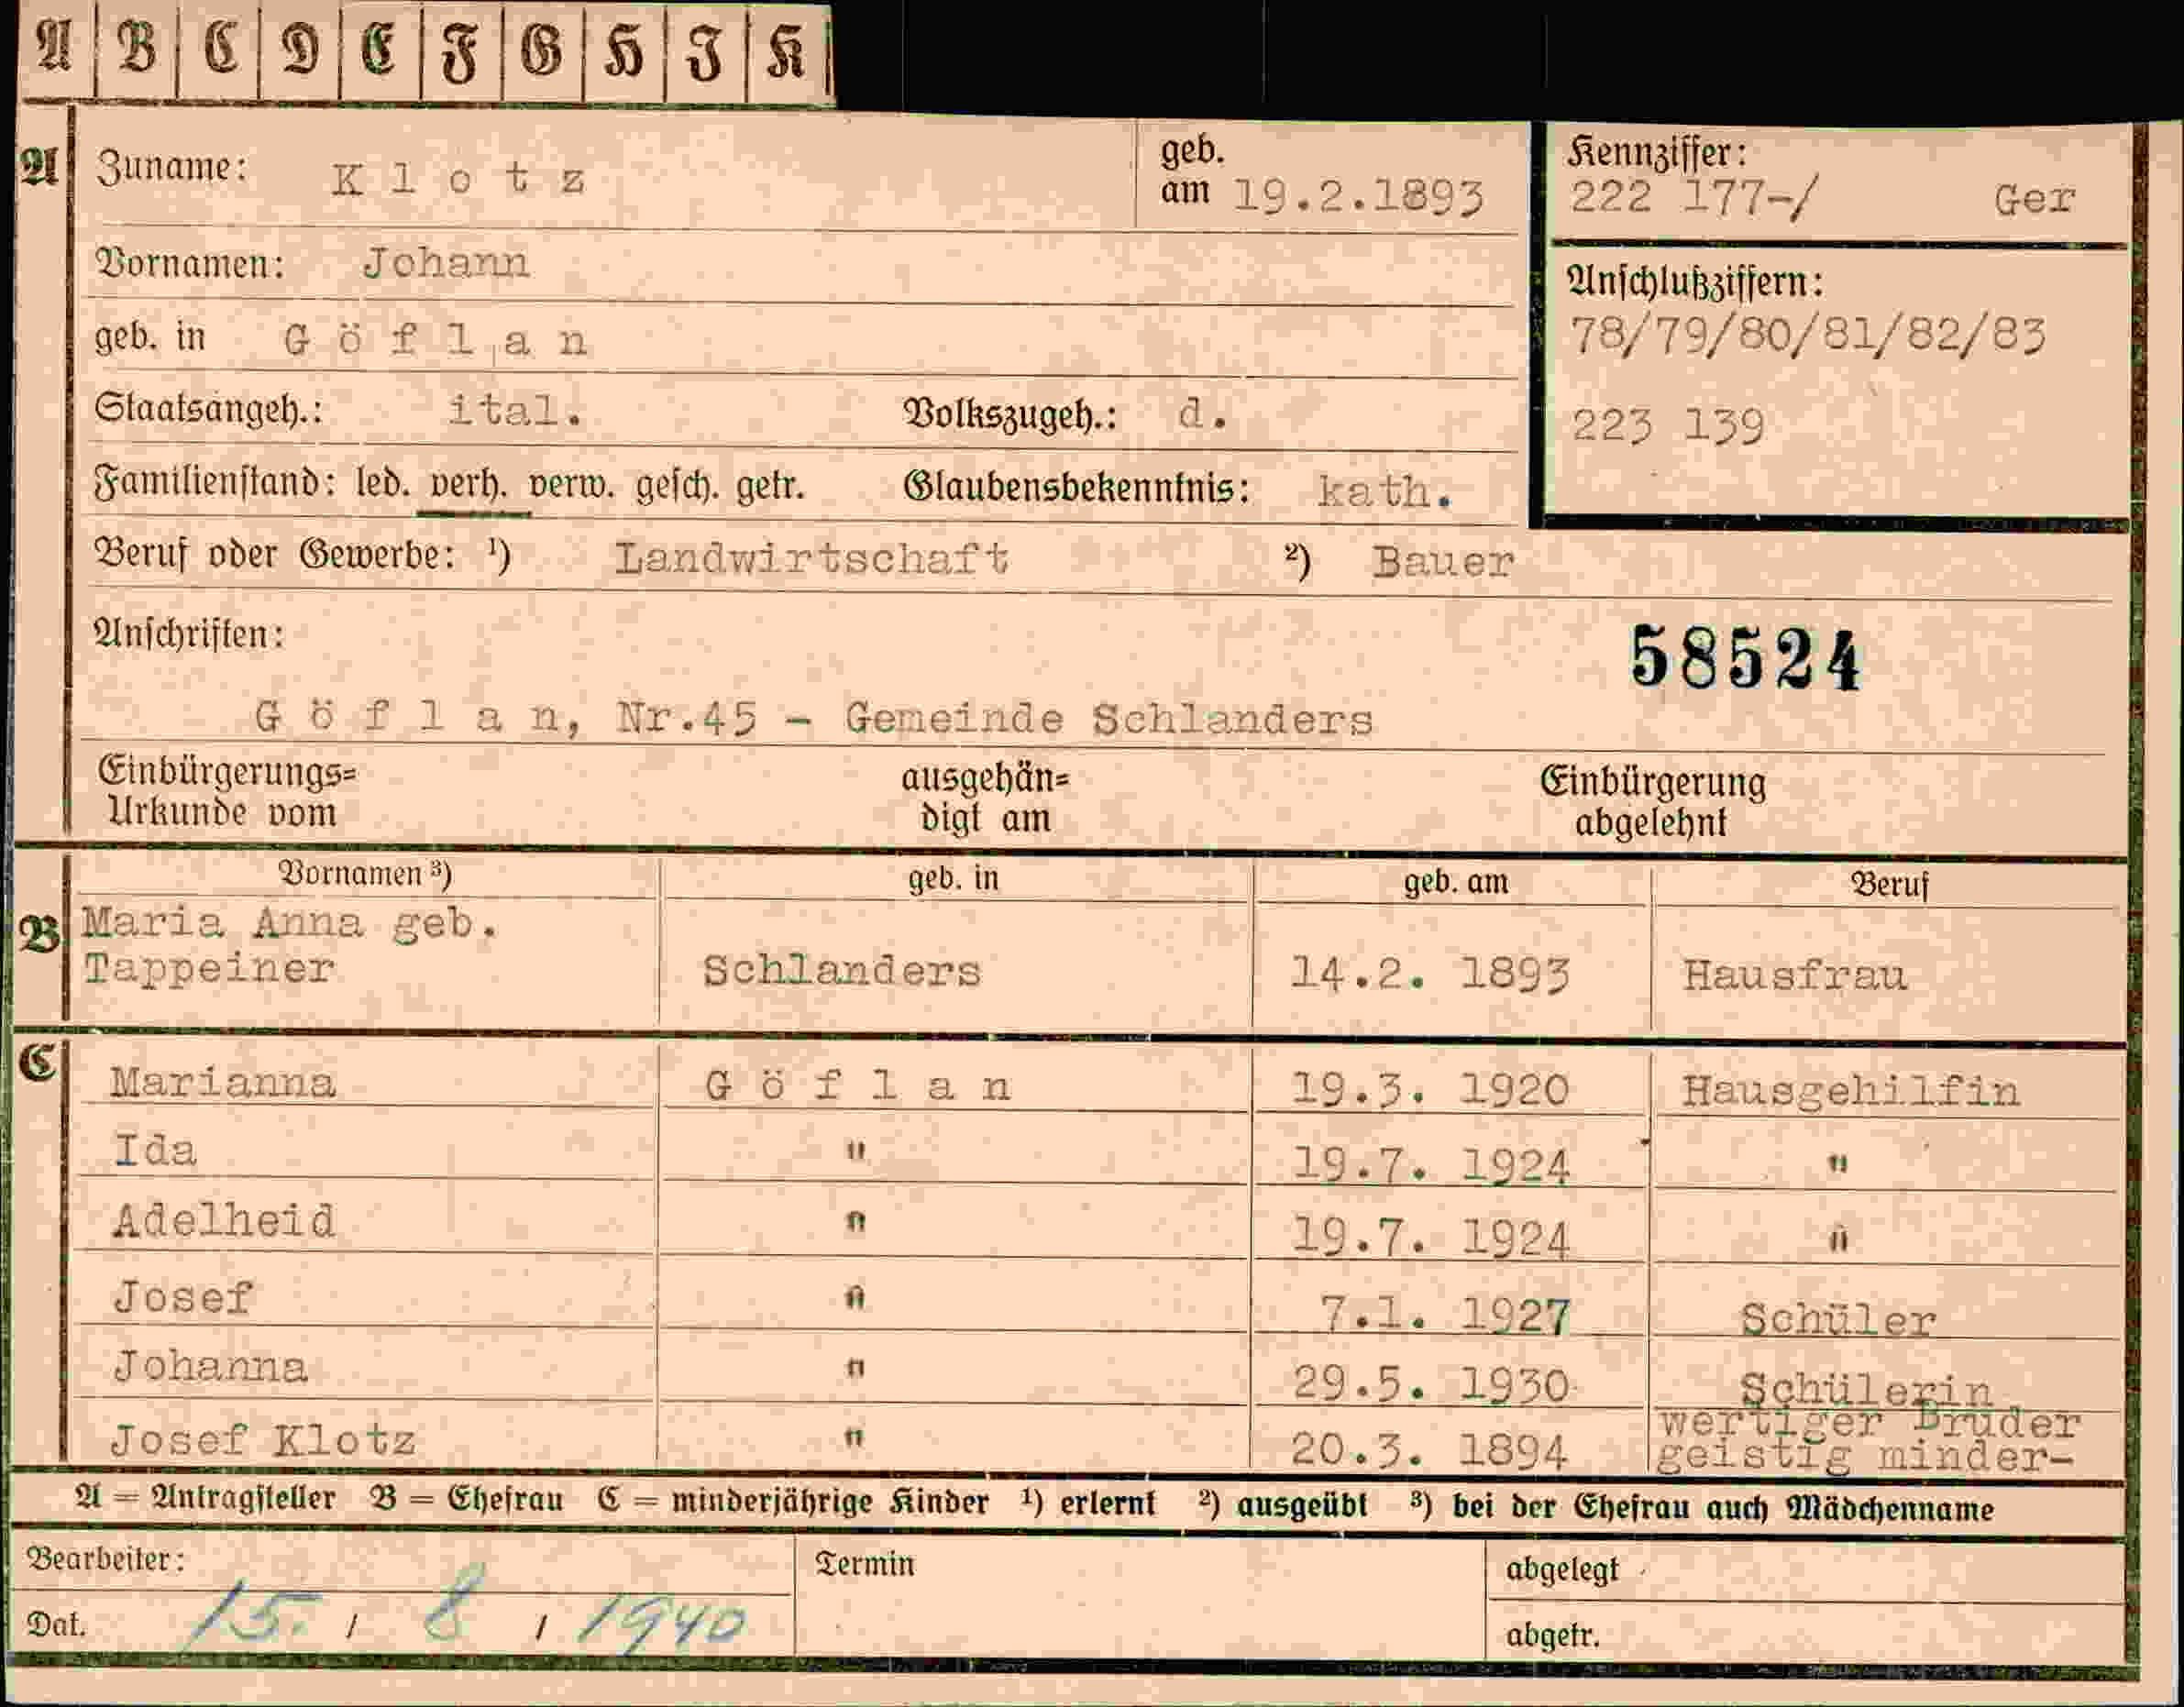 A B C D E F G H I K
A Zuname: K l o t z geb. am 19.2.1893
Kennziffer:
222 177-/ Ger
Vornamen: Johann
Anschlußziffern:
geb. in G ö f l a n
78/79/80/81/82/83
Staatsangeh.: ital. Volkszugeh.: d.
223 139
Familienstand: led. verh. verw. gesch. getr. Glaubensbekenntnis: kath.
Beruf oder Gewerbe: ¹) Landwirtschaft ²) Bauer
Anschriften:
58524
G ö f l a n, Nr.45 - Gemeinde Schlanders
Einbürgerungs= ausgehän= Einbürgerung
Urkunde vom digt am abgelehnt
Vornamen ³) geb. in geb. am Beruf
B Maria Anna geb.
Tappeiner Schlanders 14.2. 1893 Hausfrau
C Marianna G ö f l a n 19.3. 1920 Hausgehilfin
Ida " 19.7. 1924 "
Adelheid " 19.7. 1924 "
Josef " 7.1. 1927 Schüler
Johanna " 29.5. 1930 Schülerin
wertiger Bruder
Josef Klotz " 20.3. 1894 geistig minder-
A = Antragsteller B = Ehefrau C = minderjährige Kinder ¹) erlernt ²) ausgeübt ³) bei der Ehefrau auch Mädchenname
Bearbeiter: Termin abgelegt
Dat. 15. / 8 / 1940 abgetr.